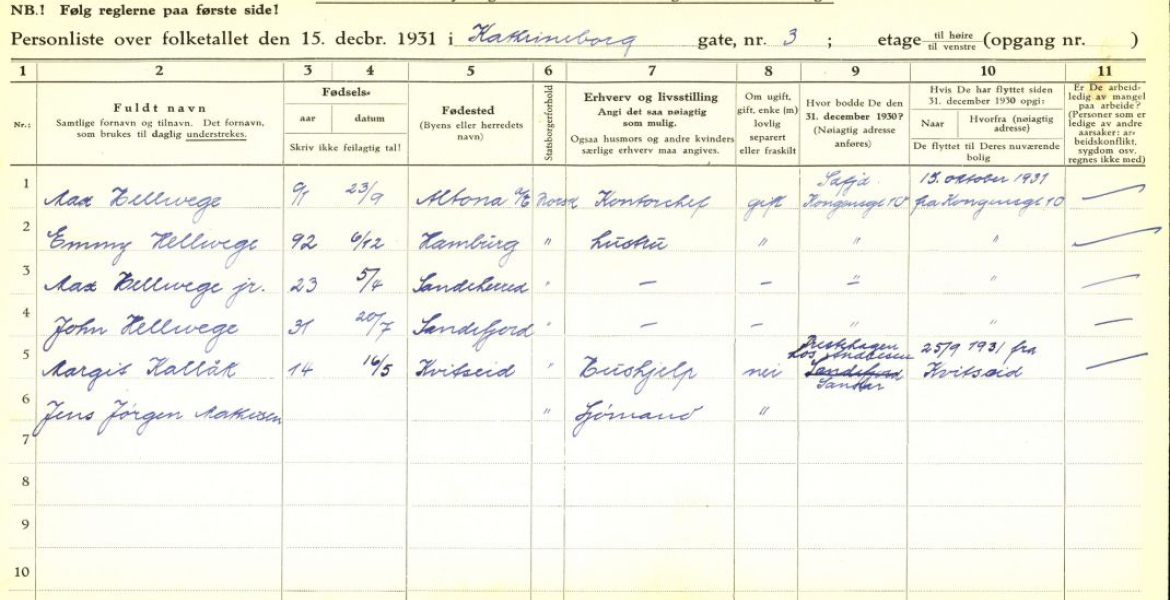 NB.! Følg reglerne paa første side!
Personliste over folketallet den 15. decbr. 1931 i Katrineborg gate, nr. 3 ; etage til høire / til venstre (opgang nr. )
1 2 3 4 5 6 7 8 9 10 11
Nr.:
Fuldt navn
Samtlige fornavn og tilnavn. Det fornavn,
som brukes til daglig understrekes.
Fødsels-
aar datum
Skriv ikke feilagtig tal!
Fødested
(Byens eller herredets
navn)
Statsborgerforhold
Erhverv og livsstilling
Angi det saa nøiagtig
som mulig.
Ogsaa husmors og andre kvinders
særlige erhverv maa angives.
Om ugift,
gift, enke (m)
lovlig
separert
eller fraskilt
Hvor bodde De den
31. december 1930?
(Nøiagtig adresse
anføres)
Hvis De har flyttet siden
31. december 1930 opgi:
Naar Hvorfra (nøiagtig
adresse)
De flyttet til Deres nuværende
bolig
Er De arbeid-
ledig av mangel
paa arbeide?
(Personer som er
ledige av andre
aarsaker: ar-
beidskonflikt,
sygdom osv.
regnes ikke med)
1 Max Hellwege 91 23/9 Altona a/E Norsk Kontorchef gift Kongensgt 10 15. oktober 1931 fra Kongensgt 10 —
2 Emmy Hellwege 92 6/12 Hamburg " hustru " " " —
3 Max Hellwege jr. 23 5/4 Sandeherred " — — " " —
4 John Hellwege 31 20/7 Sandefjord " — — " " —
5 Margit Kallåk 14 16/5 Kvitseid " Hushjelp nei Sandefjord Sandar 25/9 1931 fra Kvitseid —
6 Jens Jørgen Mathisen " Sjömand "
7
8
9
10